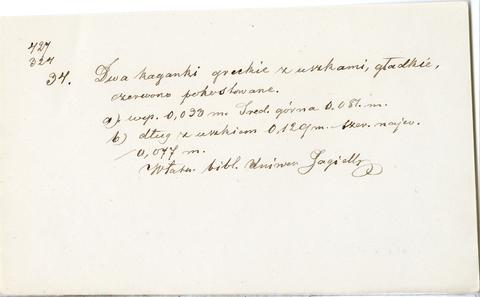 427
324
34. Dwa kaganki greckie z uszkami, gładkie,
czerwono pokostowane.
a) wys. 0,033 m. Śred. górna 0.081. m.
b) dług z uszkiem 0,129 m. szer. najw.
0,077 m.
Własn. bibl. Uniwer. Jagiell.